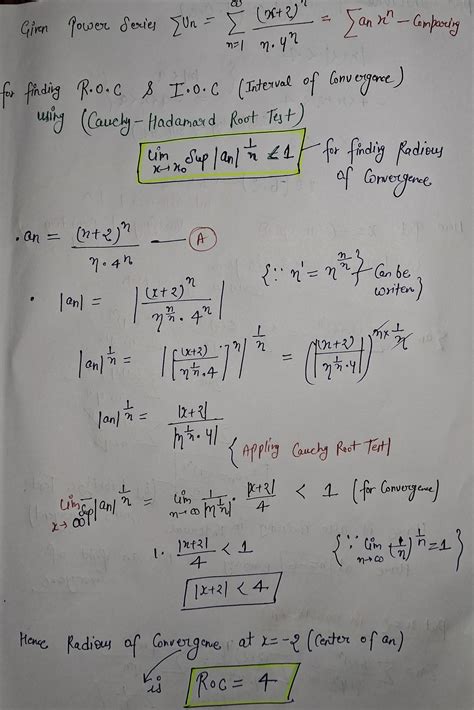 Given Power Series ∑Un = ∞∑n=1 (x+2)^n / n·4^n = ∑an x^n – Comparing
for finding R.O.C & I.O.C (Interval of Convergence)
using (Cauchy-Hadamard Root Test)
Lim x→x0 Sup |an|^1/n < 1 – for finding Radious
of Convergence
• an = (x+2)^n / n·4^n — (A)
• |an| = |(x+2)^n / n^n/n · 4^n| {∵ n' = n^n/n} Can be
writen}
|an|^1/n = |[(x+2) / n^1/n·4]^n|^1/n = (|(x+2) / n^1/n·4|)^n×1/n
|an|^1/n = |x+2| / |n^1/n·4|
{Applying Cauchy Root Test}
Lim x→∞ Sup |an|^1/n = Lim n→∞ 1/|n^1/n| · |x+2|/4 < 1 (for Convergence)
1. |x+2|/4 < 1 {∵ Lim n→∞ (1/n)^1/n = 1}
|x+2| < 4
Hence Radious of Convergence at x=-2 (Center of an)
is ROC = 4